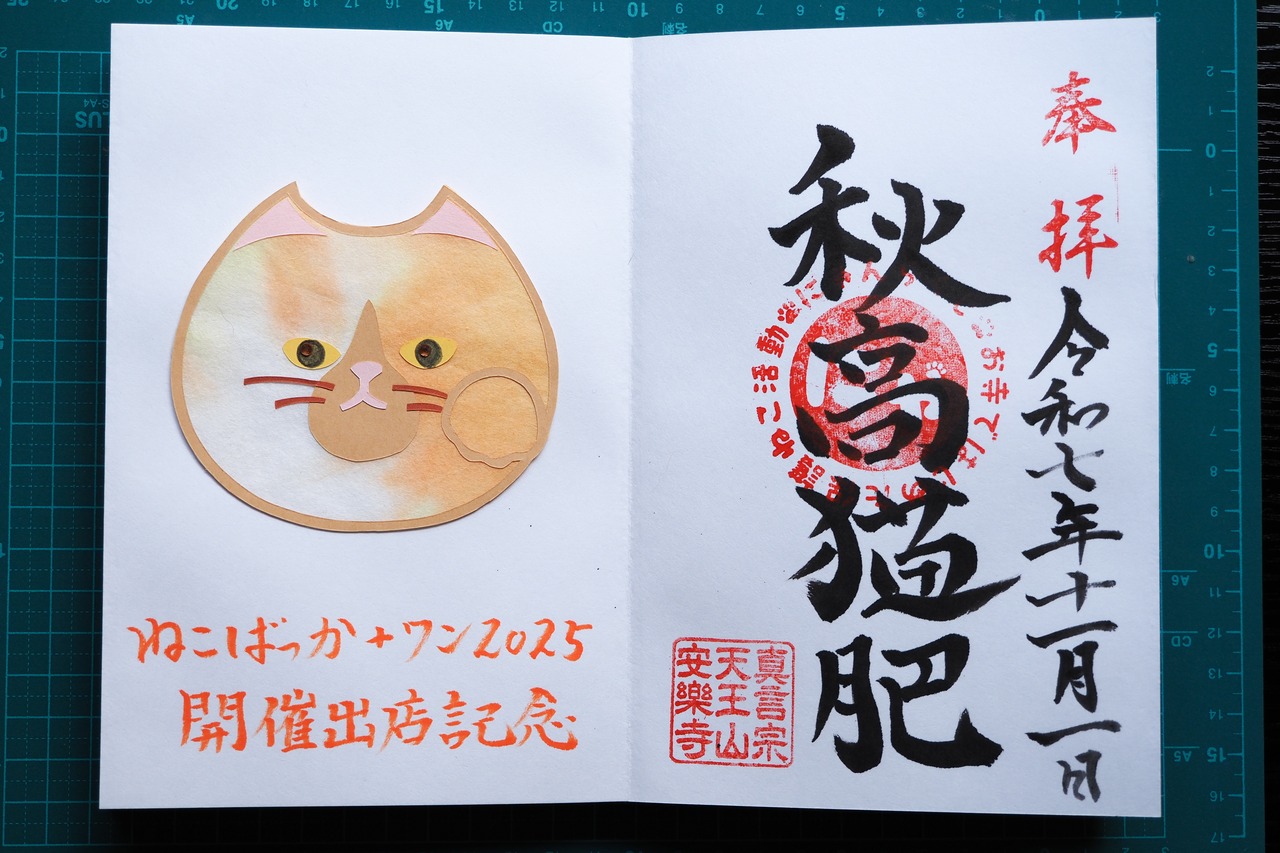 奉拝
令和七年十一月一日
秋高猫肥
真言宗
天王山
安樂寺
ねこばっか+ワン2025
開催出店記念
PLUS